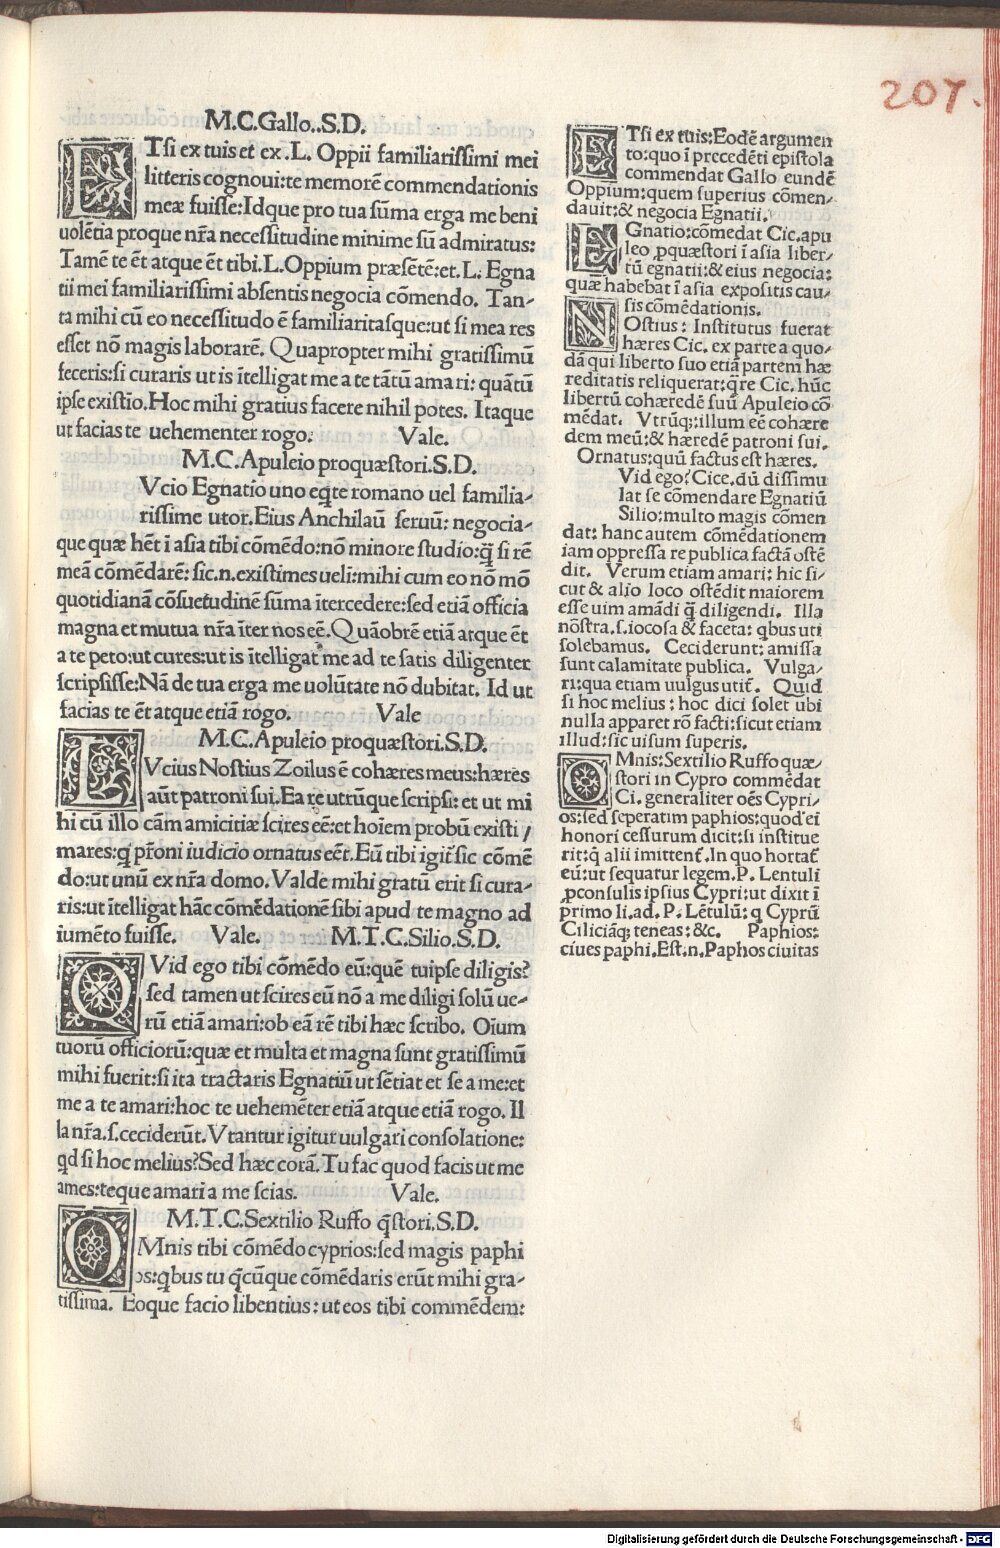 207.
M.C.Gallo..S.D.
ETsi ex tuis et ex .L. Oppii familiarissimi mei
litteris cognoui:te memorē commendationis
meæ fuisse:Idque pro tua sūma erga me beni
uolētia proque nr̄a necessitudine minime sū admiratus:
Tamē te ēt atque ēt tibi.L.Oppium præsētē:et.L. Egna
tii mei familiarissimi absentis negocia cōmendo. Tan-
ta mihi cū eo necessitudo ē familiaritasque:ut si mea res
esset nō magis laborarē. Quapropter mihi gratissimū
feceris:si curaris ut is ītelligat me a te tātū amari: quātū
ipse existīo.Hoc mihi gratius facere nihil potes. Itaque
ut facias te uehementer rogo. Vale.
M.C.Apuleio proquæstori.S.D.
Vcio Egnatio uno eq̄te romano uel familia-
rissime utor.Eius Anchilaū seruū: negocia-
que quæ hēt ī asia tibi cōmēdo:nō minore studio:q̄ si rē
meā cōmēdarē: sic.n.existimes ueli:mihi cum eo nō mō
quotidianā cōsuetudinē sūma ītercedere:sed etiā officia
magna et mutua nr̄a īter nos eē.Quāobrē etiā atque ēt
a te peto:ut cures:ut is ītelligat me ad te satis diligenter
scripsisse:Nā de tua erga me uolūtate nō dubitat. Id ut
facias te ēt atque etiā rogo. Vale
M.C.Apuleio proquæstori.S.D.
LVcius Nostius Zoilus ē cohæres meus:hæres
aūt patroni sui.Ea re utrūque scripsi: et ut mi
hi cū illo cām amicitiæ scires eē:et hoīem probū existi/
mares:q̄ pr̄oni iudicio ornatus eēt.Eū tibi igit̄ sic cōmē
do:ut unū ex nr̄a domo.Valde mihi gratū erit si cura-
ris:ut ītelligat hāc cōmēdationē sibi apud te magno ad
iumēto fuisse. Vale. M.T.C.Silio.S.D.
QVid ego tibi cōmēdo eū:quē tuipse diligis?
sed tamen ut scires eū nō a me diligi solū ue-
rū etiā amari:ob eā rē tibi hæc scribo. Oīum
tuorū officiorū:quæ et multa et magna sunt gratissimū
mihi fuerit:si ita tractaris Egnatiū ut sētiat et se a me:et
me a te amari:hoc te uehemēter etiā atque etiā rogo. Il
la nr̄a.s.ceciderūt.Vtantur igitur uulgari consolatione:
qd si hoc melius?Sed hæc corā.Tu fac quod facis ut me
ames:teque amari a me scias. Vale.
M.T.C.Sextilio Ruffo q̄stori.S.D.
OMnis tibi cōmēdo cyprios:sed magis paphi
os:qbus tu q̄cūque cōmēdaris erūt mihi gra-
tissima. Eoque facio libentius: ut eos tibi commēdem:
ETsi ex tuis:Eodē argumen
to:quo ī precedēti epistola
commendat Gallo eundē
Oppium:quem superius cōmen-
dauit:& negocia Egnatii.
EGnatio:cōmēdat Cic.apu
leo ꝓquæstori ī asia liber-
tū egnatii:& eius negocia:
quæ habebat ī asia expositis cau-
sis cōmēdationis.
NOstius: Institutus fuerat
hæres Cic. ex parte a quo-
dā qui liberto suo etiā partem hæ
reditatis reliquerat:q̄re Cic. hūc
libertū cohæredē suū Apuleio cō
mēdat. Vtrūq;:illum eē cohære
dem meū:& hæredē patroni sui.
Ornatus:quū factus est hæres.
Vid ego? Cice.dū dissimu
lat se cōmendare Egnatiū
Silio:multo magis cōmen
dat: hanc autem cōmēdationem
iam oppressa re publica factā ostē
dit. Verum etiam amari: hic si-
cut & alio loco ostēdit maiorem
esse uim amādi q̄ diligendi. Illa
nōstra.s.iocosa & faceta: qbus uti
solebamus. Ceciderunt: amissa
sunt calamitate publica. Vulga-
ri:qua etiam uulgus utit̄. Quid
si hoc melius : hoc dici solet ubi
nulla apparet rō facti:sicut etiam
illud:sic uisum superis.
OMnis:Sextilio Ruffo quæ-
stori in Cypro commēdat
Ci. generaliter oēs Cypri-
os:sed seperatim paphios:quod ei
honori cessurum dicit:si institue
rit:q̄ alii imittent̄.In quo hortat̄
eū:ut sequatur legem.P. Lentuli
ꝓconsulis ipsius Cypri:ut dixit ī
primo li.ad. P. Lētulū: q Cyprū
Ciliciāq; teneas:&c. Paphios:
ciues paphi.Est.n.Paphos ciuitas
Digitalisierung gefördert durch die Deutsche Forschungsgemeinschaft - DFG